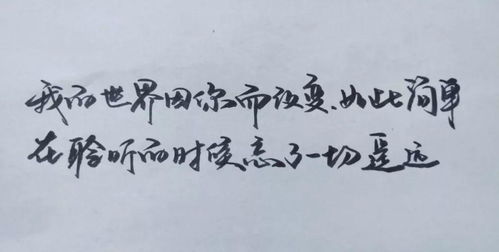 我的世界因你而改变.如此简单
在聆听的时候忘了一切遥远